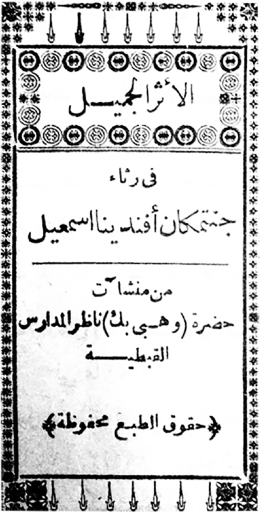 الأثر الجميـــل
فى رثاء
جنتمكان أفندينا اسمعيل
من منشآت
حضرة (وهـبى بك) ناظر المدارس
القبطيـــة
﴿حقوق الطبع محفوظة﴾